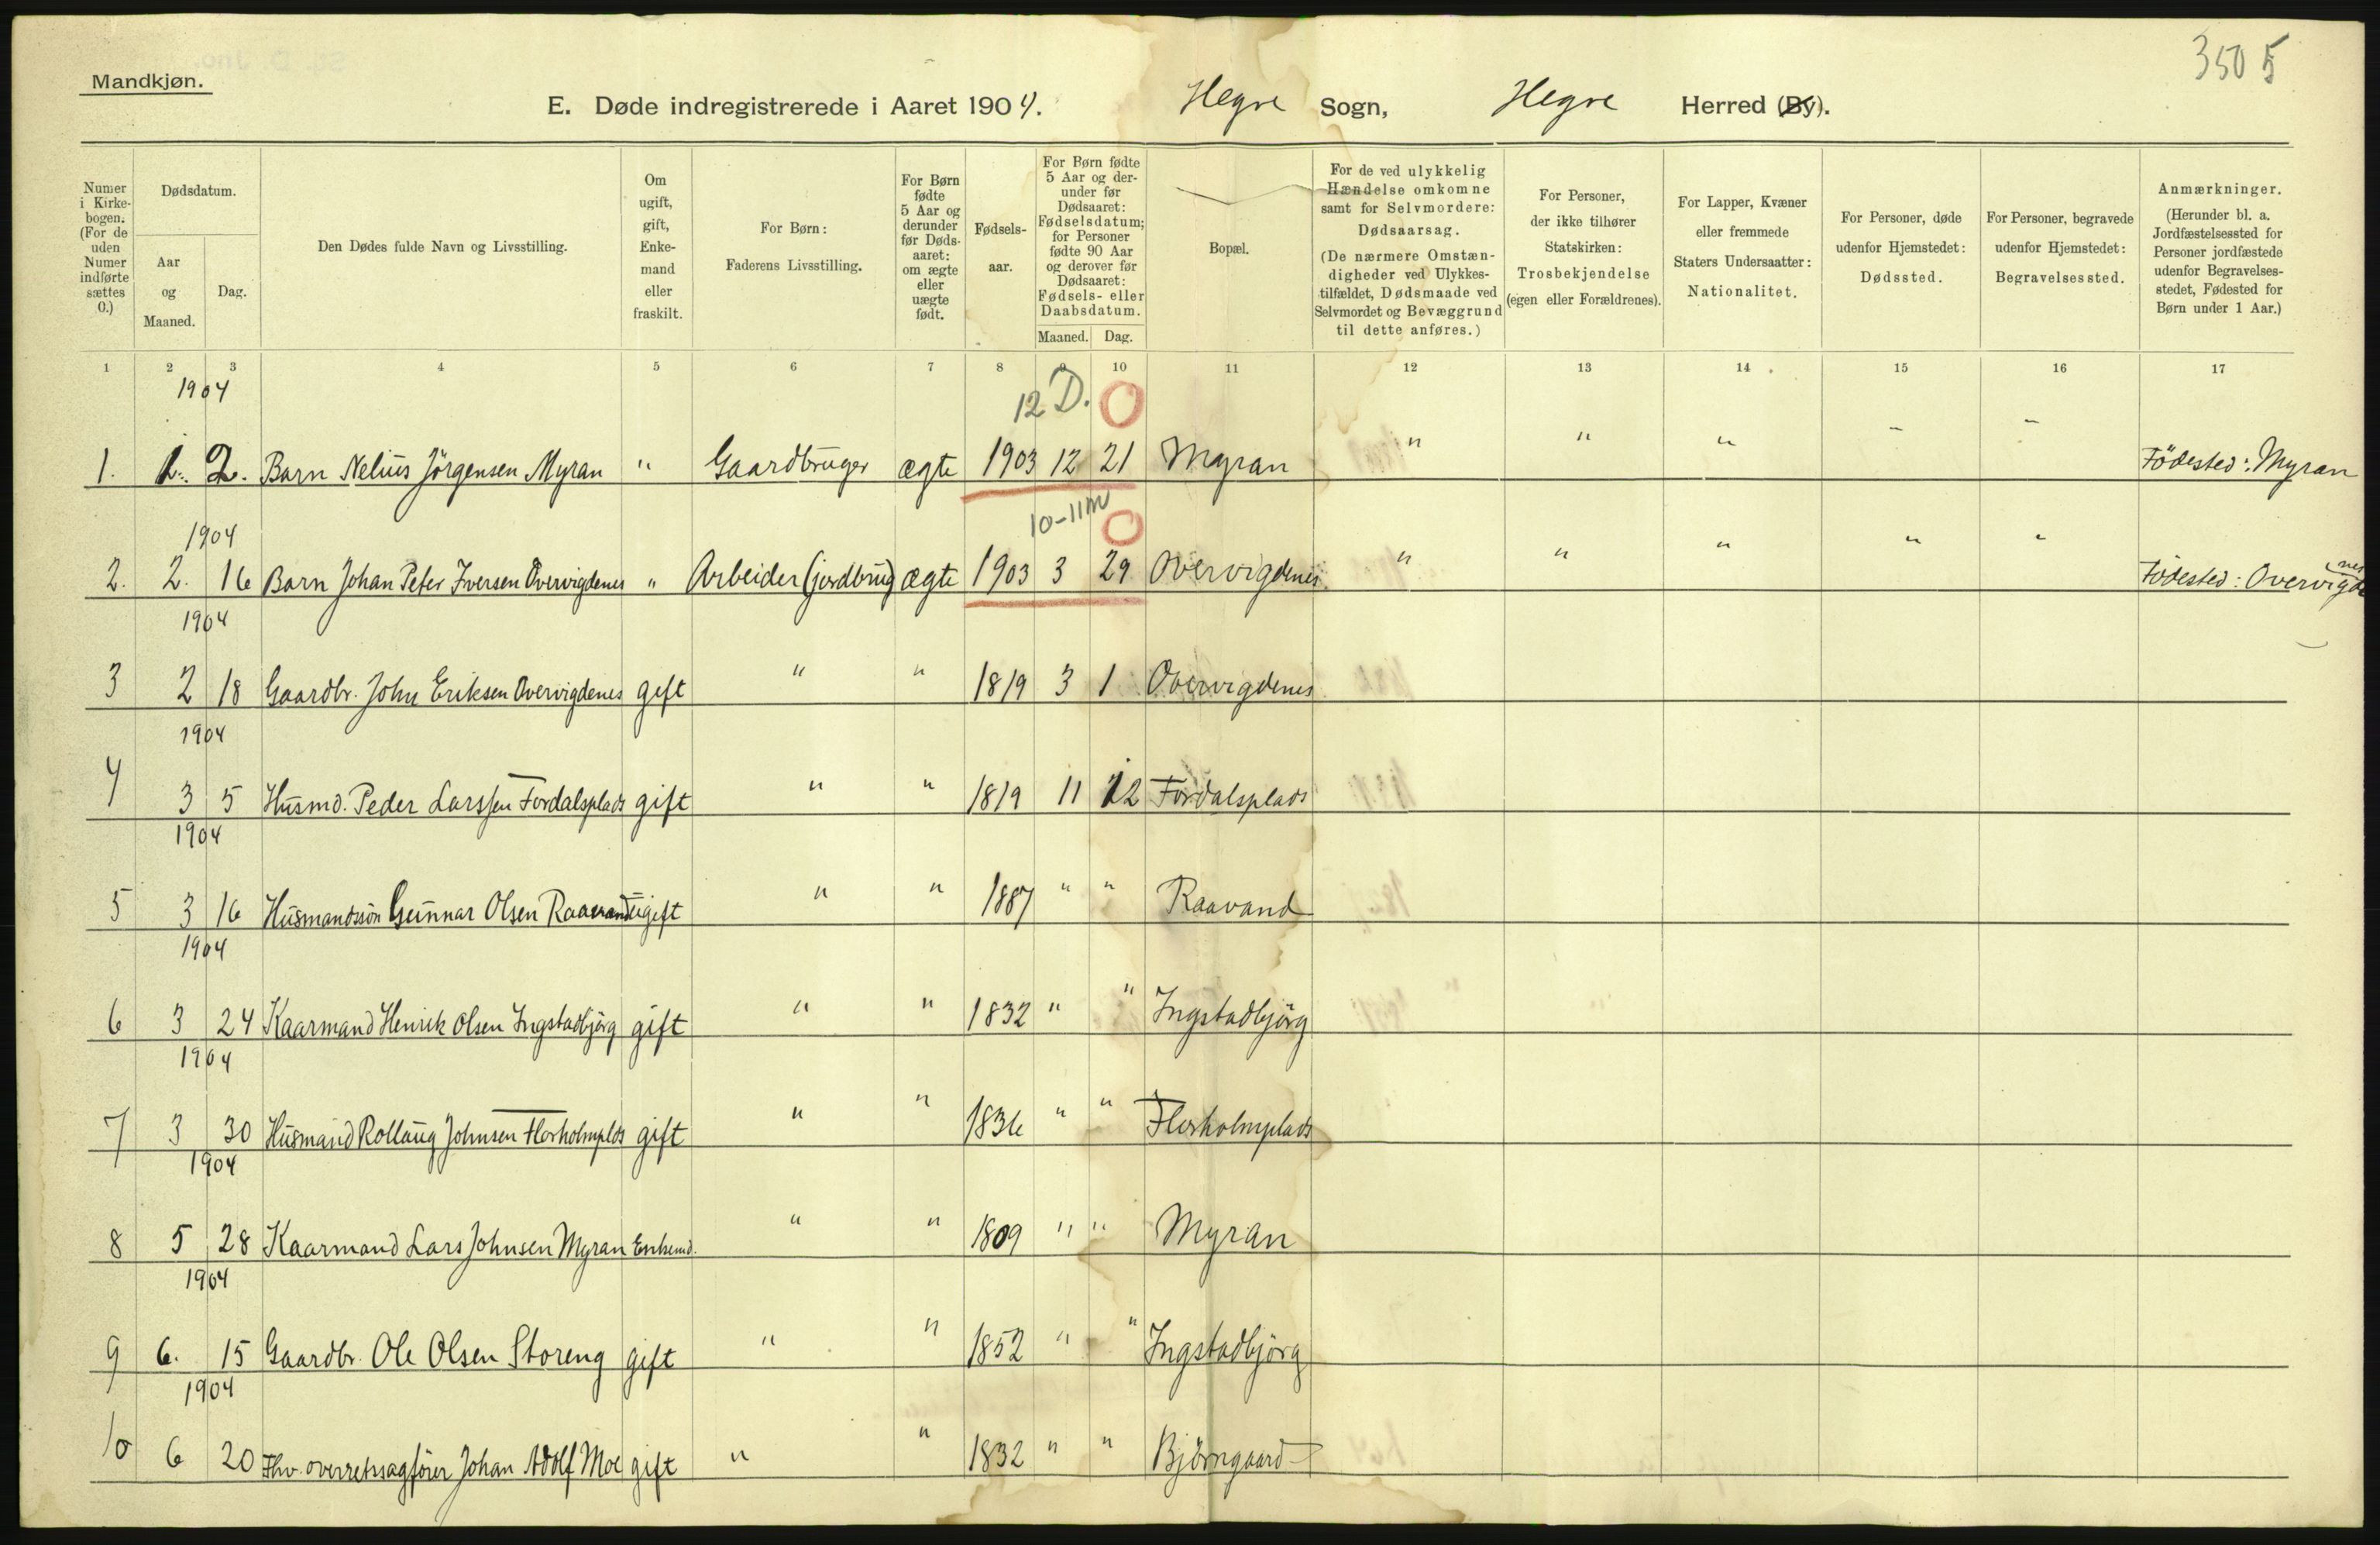 3505
Mandkjøn.
E. Døde indregistrerede i Aaret 1904. Hegre Sogn, Hegre Herred (By).
Numer i Kirke-bogen. (For de uden Numer indførte sættes 0.)
Dødsdatum.
Aar og Maaned.
Dag.
Den Dødes fulde Navn og Livsstilling.
Om ugift, gift, Enke-mand eller fraskilt.
For Børn: Faderens Livsstilling.
For Børn fødte 5 Aar og derunder før Døds-aaret: om ægte eller uægte født.
Fødsels-aar.
For Børn fødte 5 Aar og der-under før Dødsaaret: Fødselsdatum; for Personer fødte 90 Aar og derover før Dødsaaret: Fødsels- eller Daabsdatum.
Maaned. Dag.
Bopæl.
For de ved ulykkelig Hændelse omkomne samt for Selvmordere: Dødsaarsag. (De nærmere Omstæn-digheder ved Ulykkes-tilfældet, Dødsmaade ved Selvmordet og Bevæggrund til dette anføres.)
For Personer, der ikke tilhører Statskirken: Trosbekjendelse (egen eller Forældrenes).
For Lapper, Kvæner eller fremmede Staters Undersaatter: Nationalitet.
For Personer, døde udenfor Hjemstedet: Dødssted.
For Personer, begravede udenfor Hjemstedet: Begravelsessted.
Anmærkninger. (Herunder bl. a. Jordfæstelsessted for Personer jordfæstede udenfor Begravelses-stedet, Fødested for Børn under 1 Aar.)
1 2 3 4 5 6 7 8 9 10 11 12 13 14 15 16 17
1904
12 D. O
1. 1. 2. Barn Nelius Jörgensen Myran " Gaardbruger ægte 1903 12 21 Myran " " " " " Födested: Myran
1904
10-11 m O
2. 2. 16 Barn Johan Peter Iversen Overvigdenes " Arbeider (jordbrug) ægte 1903 3 29 Overvigdenes " " " " " Födested: Overvigdenes
1904
3 2 18 Gaardbr. John Eriksen Overvigdenes gift " " 1819 3 1 Overvigdenes
1904
4 3 5 Husmd. Peder Larssen Fordalsplads gift " " 1819 11 12 Fordalsplads
1904
5 3 16 Husmandssön Gunnar Olsen Raavand ugift " " 1887 " " Raavand
1904
6 3 24 Kaarmand Henrik Olsen Ingstadbjörg gift " " 1832 " " Ingstadbjörg
1904
7 3 30 Husmand Rollaug Johnsen Florholmplds gift " " 1836 " " Florholmplads
1904
8 5 28 Kaarmand Lars Johnsen Myran Enkemd. " " 1809 " " Myran
1904
9 6. 15 Gaardbr. Ole Olsen Storeng gift " " 1852 " " Ingstadbjörg
1904
10 6 20 Fhv. overretssagförer Johan Adolf Moe gift " " 1832 " " Björngaard